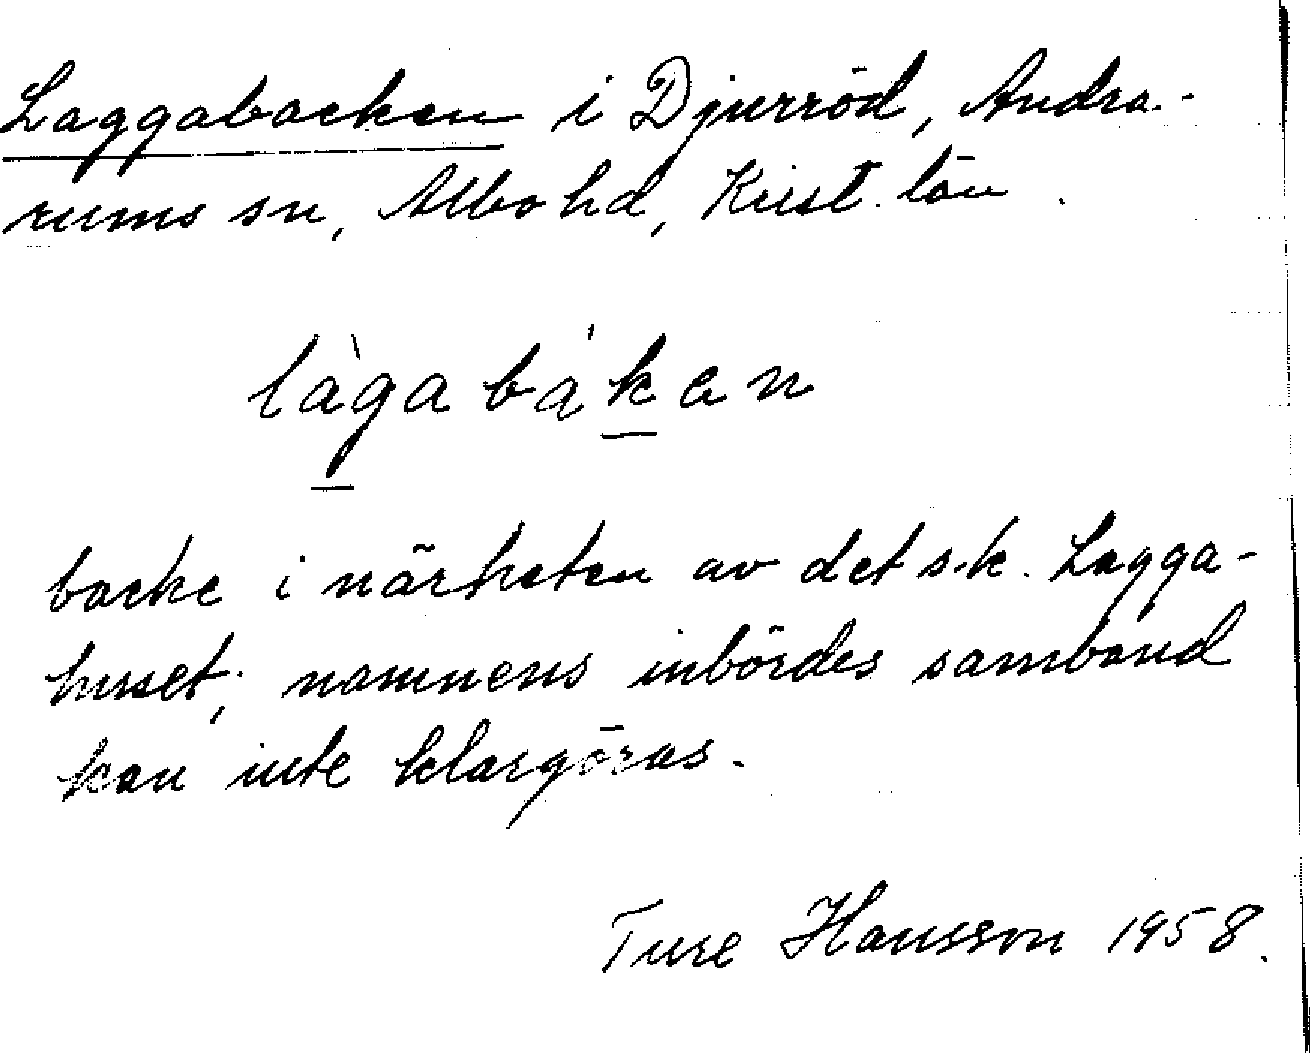 Laggabacken i Djurröd, Andra-
rums sn, Albo hd, Krist. län.
làgabákan
backe i närheten av det s.k. Lagga-
huset; namnens inbördes samband
kan inte klargöras.
Ture Hansson 1958.